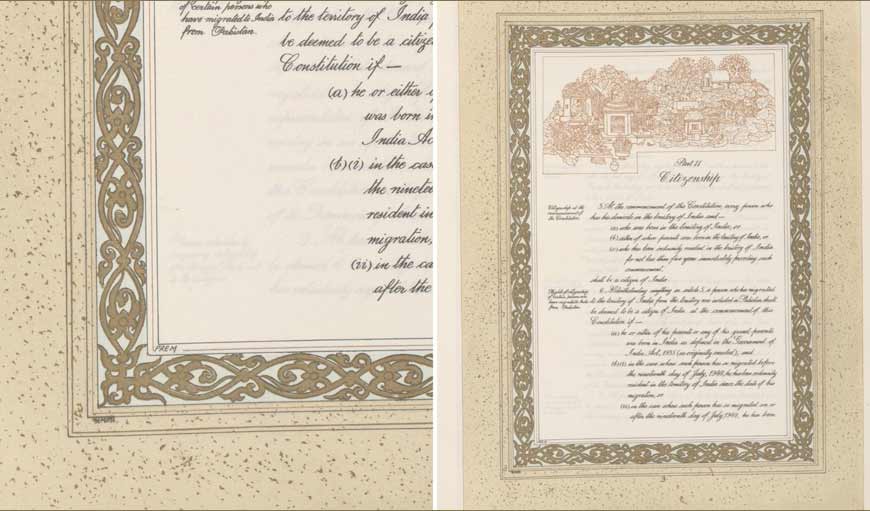 of certain persons who
have migrated to India
from Pakistan.
to the territory of India
be deemed to be a citize
Constitution if —
(a) he or either o
was born i
India Ac
(b)(i) in the cas
the ninetee
resident in
migration,
(ii) in the ca
after the
PREM
Part II
Citizenship
Citizenship at the
commencement of
the Constitution.
5. At the commencement of this Constitution, every person who
has his domicile in the territory of India and—
(a) who was born in the territory of India; or
(b) either of whose parents was born in the territory of India; or
(c) who has been ordinarily resident in the territory of India
for not less than five years immediately preceding such
commencement,
shall be a citizen of India.
Rights of citizenship
of certain persons who
have migrated to India
from Pakistan.
6. Notwithstanding anything in article 5, a person who has migrated
to the territory of India from the territory now included in Pakistan shall
be deemed to be a citizen of India at the commencement of this
Constitution if —
(a) he or either of his parents or any of his grand-parents
was born in India as defined in the Government of
India Act, 1935 (as originally enacted); and
(b)(i) in the case where such person has so migrated before
the nineteenth day of July, 1948, he has been ordinarily
resident in the territory of India since the date of his
migration, or
(ii) in the case where such person has so migrated on or
after the nineteenth day of July, 1948, he has been
3